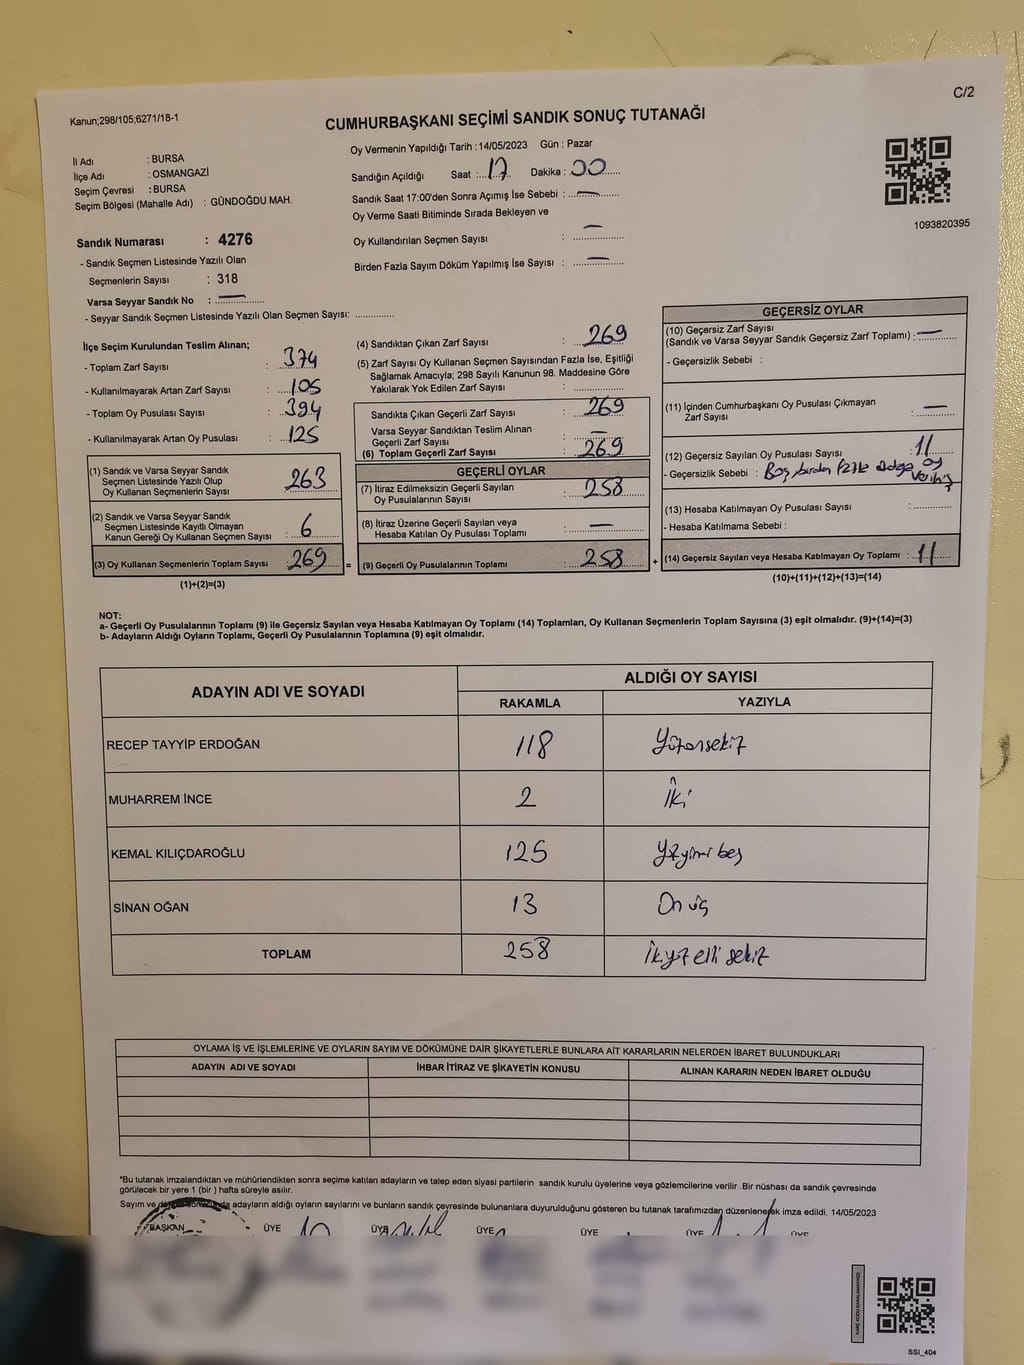 C/2
Kanun;298/105;6271/18-1
CUMHURBAŞKANI SEÇİMİ SANDIK SONUÇ TUTANAĞI
İl Adı : BURSA
İlçe Adı : OSMANGAZİ
Seçim Çevresi : BURSA
Seçim Bölgesi (Mahalle Adı) : GÜNDOĞDU MAH.
Oy Vermenin Yapıldığı Tarih : 14/05/2023 Gün : Pazar
Sandığın Açıldığı Saat : 17 Dakika : 00
Sandık Saat 17:00'den Sonra Açımış İse Sebebi : —
Oy Verme Saati Bitiminde Sırada Bekleyen ve
Oy Kullandırılan Seçmen Sayısı : —
Birden Fazla Sayım Döküm Yapılmış İse Sayısı : —
1093820395
Sandık Numarası : 4276
- Sandık Seçmen Listesinde Yazılı Olan
Seçmenlerin Sayısı : 318
Varsa Seyyar Sandık No : —
- Seyyar Sandık Seçmen Listesinde Yazılı Olan Seçmen Sayısı: ..............
İlçe Seçim Kurulundan Teslim Alınan;
- Toplam Zarf Sayısı : 374
- Kullanılmayarak Artan Zarf Sayısı : 105
- Toplam Oy Pusulası Sayısı : 394
- Kullanılmayarak Artan Oy Pusulası : 125
(1) Sandık ve Varsa Seyyar Sandık
Seçmen Listesinde Yazılı Olup
Oy Kullanan Seçmenlerin Sayısı : 263
(2) Sandık ve Varsa Seyyar Sandık
Seçmen Listesinde Kayıtlı Olmayan
Kanun Gereği Oy Kullanan Seçmen Sayısı : 6
(3) Oy Kullanan Seçmenlerin Toplam Sayısı : 269
(1)+(2)=(3)
(4) Sandıktan Çıkan Zarf Sayısı : 269
(5) Zarf Sayısı Oy Kullanan Seçmen Sayısından Fazla İse, Eşitliği
Sağlamak Amacıyla; 298 Sayılı Kanunun 98. Maddesine Göre
Yakılarak Yok Edilen Zarf Sayısı : ..............
Sandıkta Çıkan Geçerli Zarf Sayısı : 269
Varsa Seyyar Sandıktan Teslim Alınan
Geçerli Zarf Sayısı : —
(6) Toplam Geçerli Zarf Sayısı : 269
GEÇERLİ OYLAR
(7) İtiraz Edilmeksizin Geçerli Sayılan
Oy Pusulalarının Sayısı : 258
(8) İtiraz Üzerine Geçerli Sayılan veya
Hesaba Katılan Oy Pusulası Toplamı : —
= (9) Geçerli Oy Pusulalarının Toplamı : 258 +
GEÇERSİZ OYLAR
(10) Geçersiz Zarf Sayısı
(Sandık ve Varsa Seyyar Sandık Geçersiz Zarf Toplamı) : —
- Geçersizlik Sebebi :
(11) İçinden Cumhurbaşkanı Oy Pusulası Çıkmayan
Zarf Sayısı : —
(12) Geçersiz Sayılan Oy Pusulası Sayısı : 11
- Geçersizlik Sebebi : Boş, birden fazla adaya oy
verilmiş
(13) Hesaba Katılmayan Oy Pusulası Sayısı : ..............
- Hesaba Katılmama Sebebi :
(14) Geçersiz Sayılan veya Hesaba Katılmayan Oy Toplamı : 11
(10)+(11)+(12)+(13)=(14)
NOT:
a- Geçerli Oy Pusulalarının Toplamı (9) ile Geçersiz Sayılan veya Hesaba Katılmayan Oy Toplamı (14) Toplamları, Oy Kullanan Seçmenlerin Toplam Sayısına (3) eşit olmalıdır. (9)+(14)=(3)
b- Adayların Aldığı Oyların Toplamı, Geçerli Oy Pusulalarının Toplamına (9) eşit olmalıdır.
ADAYIN ADI VE SOYADI ALDIĞI OY SAYISI
RAKAMLA YAZIYLA
RECEP TAYYİP ERDOĞAN 118 Yüzonsekiz
MUHARREM İNCE 2 İki
KEMAL KILIÇDAROĞLU 125 Yüzyirmi beş
SİNAN OĞAN 13 On üç
TOPLAM 258 İkiyüz elli sekiz
OYLAMA İŞ VE İŞLEMLERİNE VE OYLARIN SAYIM VE DÖKÜMÜNE DAİR ŞİKAYETLERLE BUNLARA AİT KARARLARIN NELERDEN İBARET BULUNDUKLARI
ADAYIN ADI VE SOYADI İHBAR İTİRAZ VE ŞİKAYETİN KONUSU ALINAN KARARIN NEDEN İBARET OLDUĞU
*Bu tutanak imzalandıktan ve mühürlendikten sonra seçime katılan adayların ve talep eden siyasi partilerin sandık kurulu üyelerine veya gözlemcilerine verilir .Bir nüshası da sandık çevresinde
görülecek bir yere 1 (bir ) hafta süreyle asılır.
Sayım ve adayların aldığı oyların sayılarını ve bunların sandık çevresinde bulunanlara duyurulduğunu gösteren bu tutanak tarafımızdan düzenlenerek imza edildi. 14/05/2023
BAŞKAN ÜYE ÜYE ÜYE ÜYE ÜYE ÜYE
SSI_404